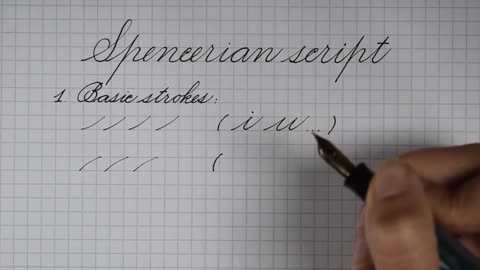 Spencerian script
1. Basic strokes:
( i u ... )
(